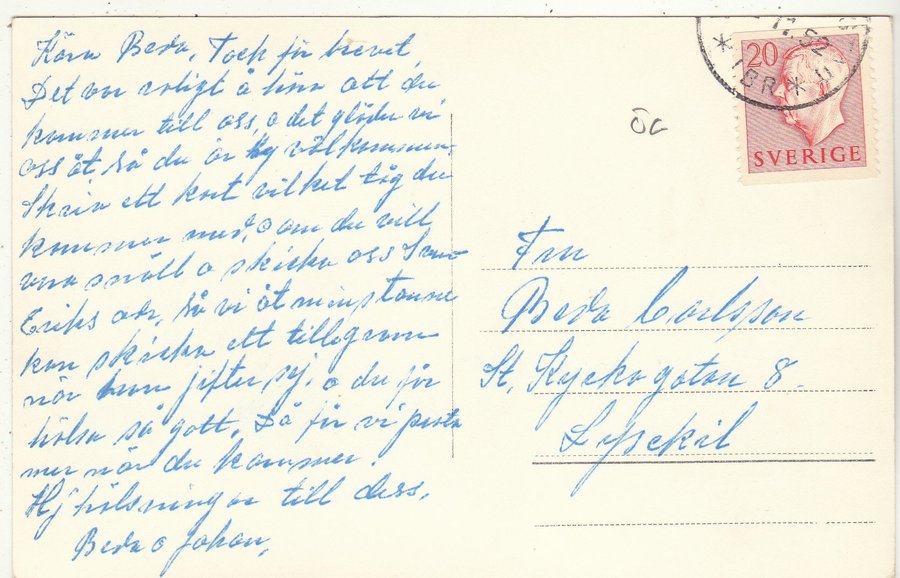 Kära Beda, Tack för brevet
Det var roligt å höra att du
kommer till oss, o det gläder vi
oss åt så du är välkommen.
Skriv ett kort vilket tåg du
kommer med, o om du vill
vara snäll o skicka oss
Eriks adr, så vi åtminstonne
kan skicka ett tillegram
när han jifter sej. o du får
hälsa så gott, Då får vi prata
mer när du kommer.
Hj hälsningar till dess,
Beda o Johan,
ÖG
20
SVERIGE
52
Frn
Beda Carlsson
St. Kyrkogatan 8.
Lysekil